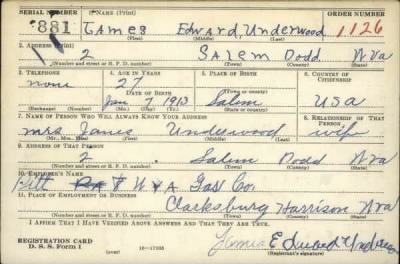 SERIAL NUMBER 1. NAME (Print) ORDER NUMBER
881 James Edward Underwood 1126
(First) (Middle) (Last)
2. ADDRESS (Print)
2 Salem Dodd WVa
(Number and street or R. F. D. number) (Town) (County) (State)
3. TELEPHONE 4. AGE IN YEARS 5. PLACE OF BIRTH 6. COUNTRY OF CITIZENSHIP
none 27 Salem USA
DATE OF BIRTH (Town or county)
Jan 7 1913
(Exchange) (Number) (Mo.) (Day) (Yr.) (State or country)
7. NAME OF PERSON WHO WILL ALWAYS KNOW YOUR ADDRESS 8. RELATIONSHIP OF THAT PERSON
Mrs Janis Underwood wife
(Mr., Mrs., Miss) (First) (Middle) (Last)
9. ADDRESS OF THAT PERSON
2 Salem Dodd WVa
(Number and street or R. F. D. number) (Town) (County) (State)
10. EMPLOYER'S NAME
Pitt & W VA Gas Co.
11. PLACE OF EMPLOYMENT OR BUSINESS
Clarksburg Harrison WVa
(Number and street or R. F. D. number) (Town) (County) (State)
I AFFIRM THAT I HAVE VERIFIED ABOVE ANSWERS AND THAT THEY ARE TRUE.
REGISTRATION CARD
D. S. S. Form 1 16—17105 James Edward Underwood
(Registrant's signature)